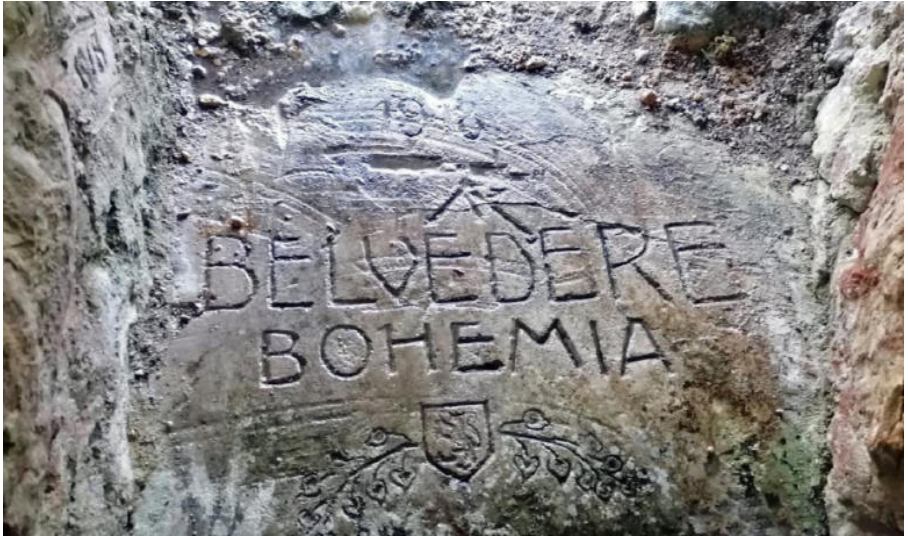 BELVEDERE
BOHEMIA